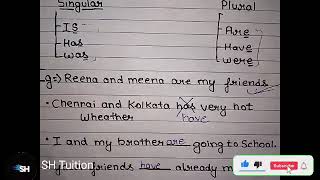 Singular Plural
IS Are
Has Have
was were
g=) Reena and meena are my friends
• Chennai and Kolkata has very hot
have
wheather
• I and my brother are going to School.
SH Tuition
friends have already
SH
Subscribe